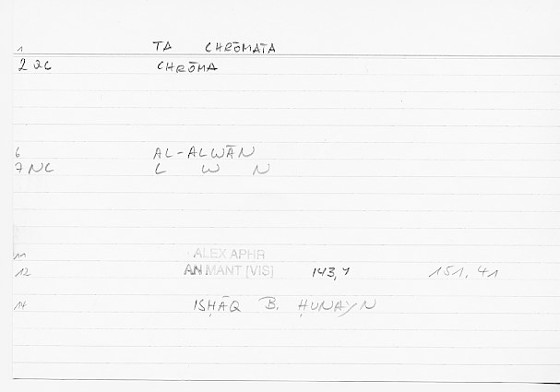 1 TA CHRŌMATA
2 QC CHRŌMA
6 AL-ALWĀN
7 NC L W N
11 ALEX APHR
12 AN MANT [VIS] 143,7 151,41
14 ISḤĀQ B. ḤUNAYN